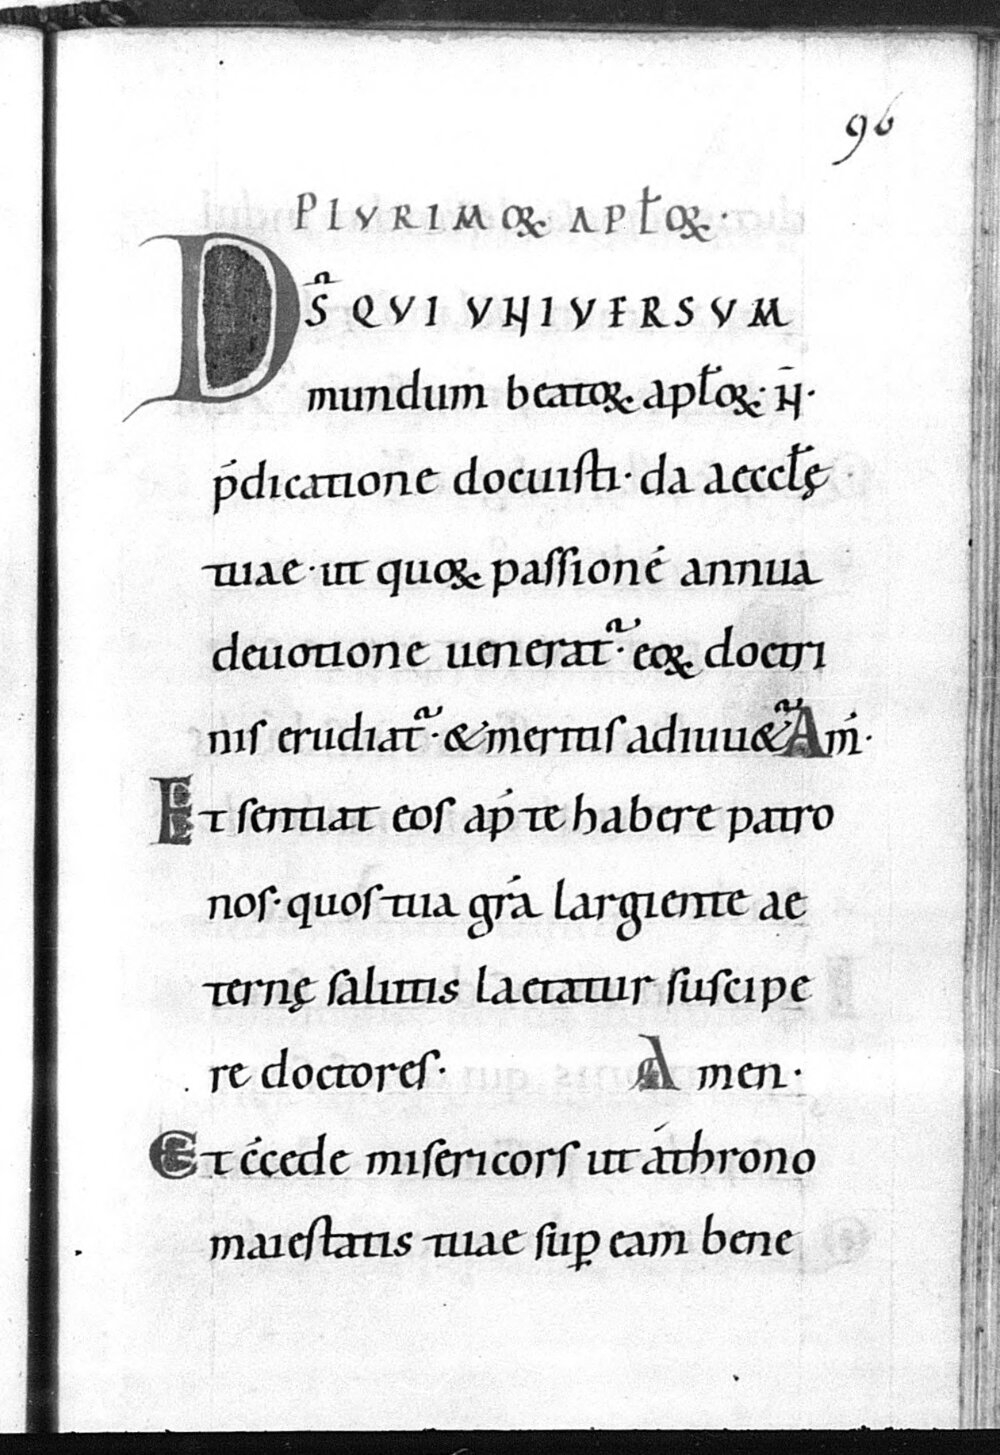 96
PLVRIMOꝜ APŁOꝜ·
DS̃ QVI VNIVERSVM
mundum beatoꝝ apłoꝝ· N̄·
p̄dicatione docuisti· da aeccłę
tuae· ut quoꝝ passioné annua
deuotione venerat᷑· eoꝝ doctri
nis erudiat᷑· & meritis adiuu&᷑ Am̄·
Et sentiat eos ap̄ te habere patro
nos· quos tua grá largiente ae
ternę salutis laetatur suscipe
re doctores· Amen·
Et c̄cede misericors ut a throno
maiestatis tuae sup̱ eam bene